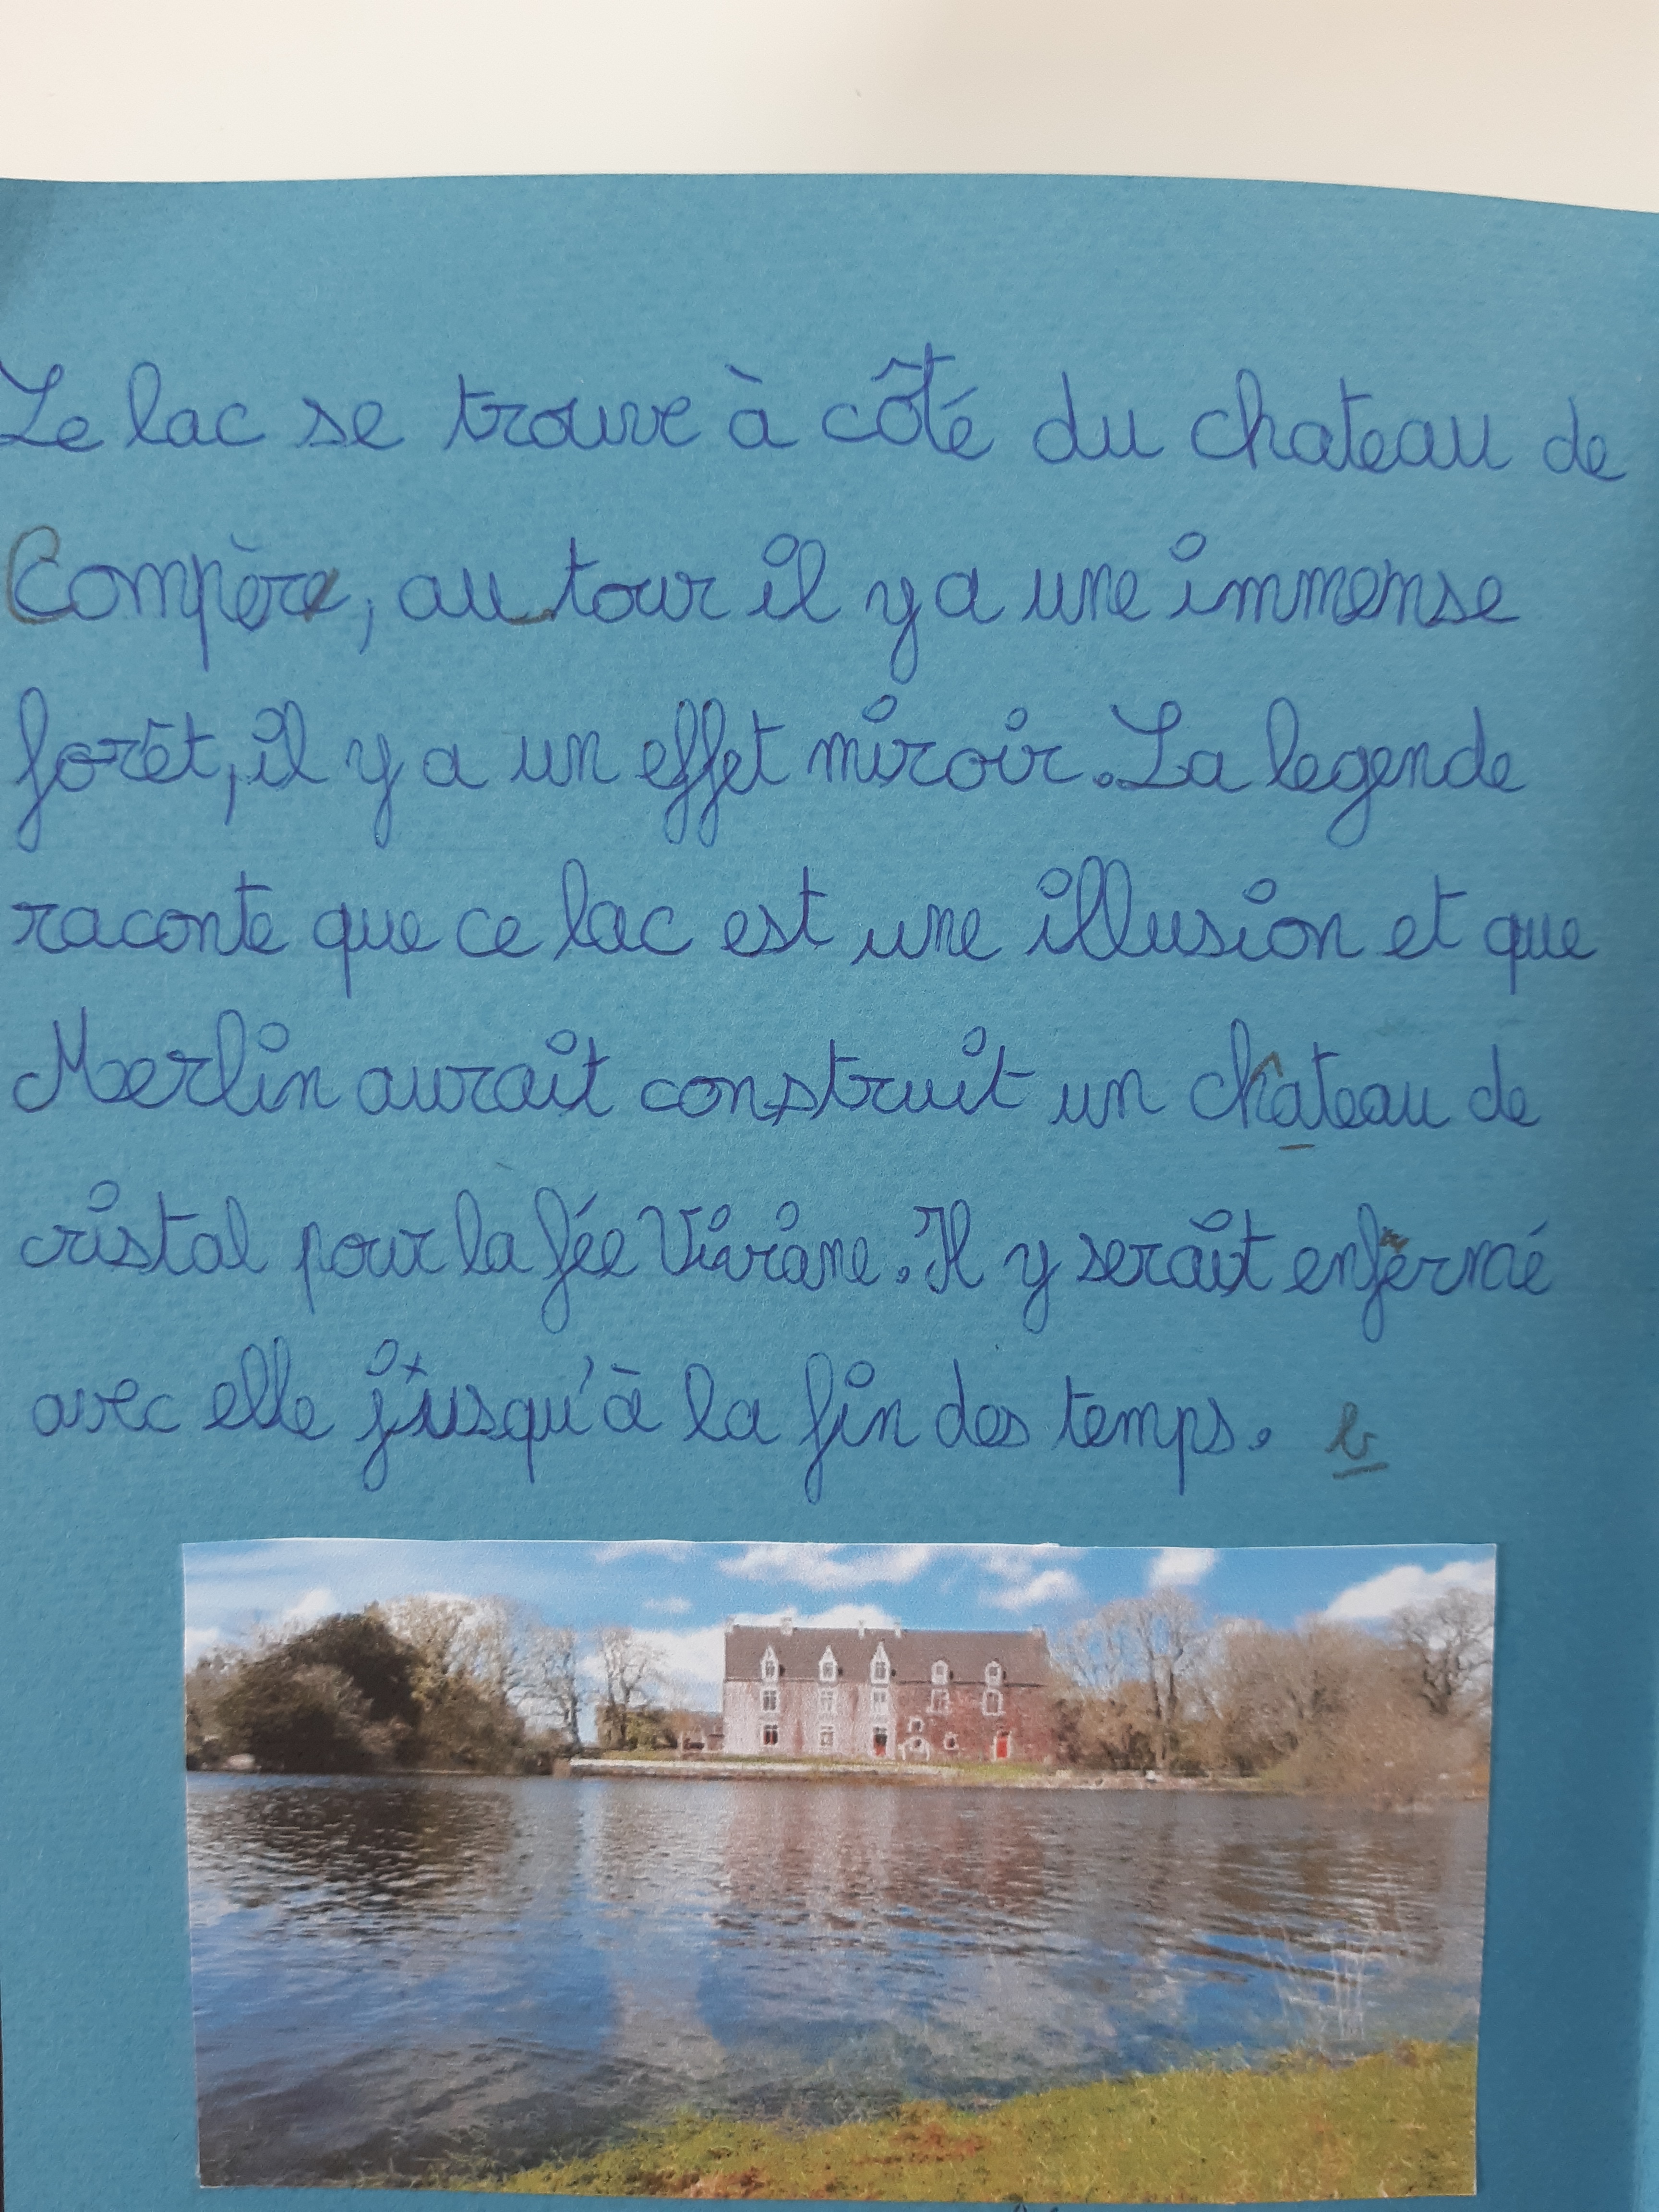 Le lac se trouve à côté du chateau de
Compère, au tour il y a une immense
forêt, il y a un effet miroir. La legende
raconte que ce lac est une illusion et que
Merlin aurait construit un château de
cristal pour la fée Viviane. Il y serait enfermé
avec elle jusqu'à la fin des temps.